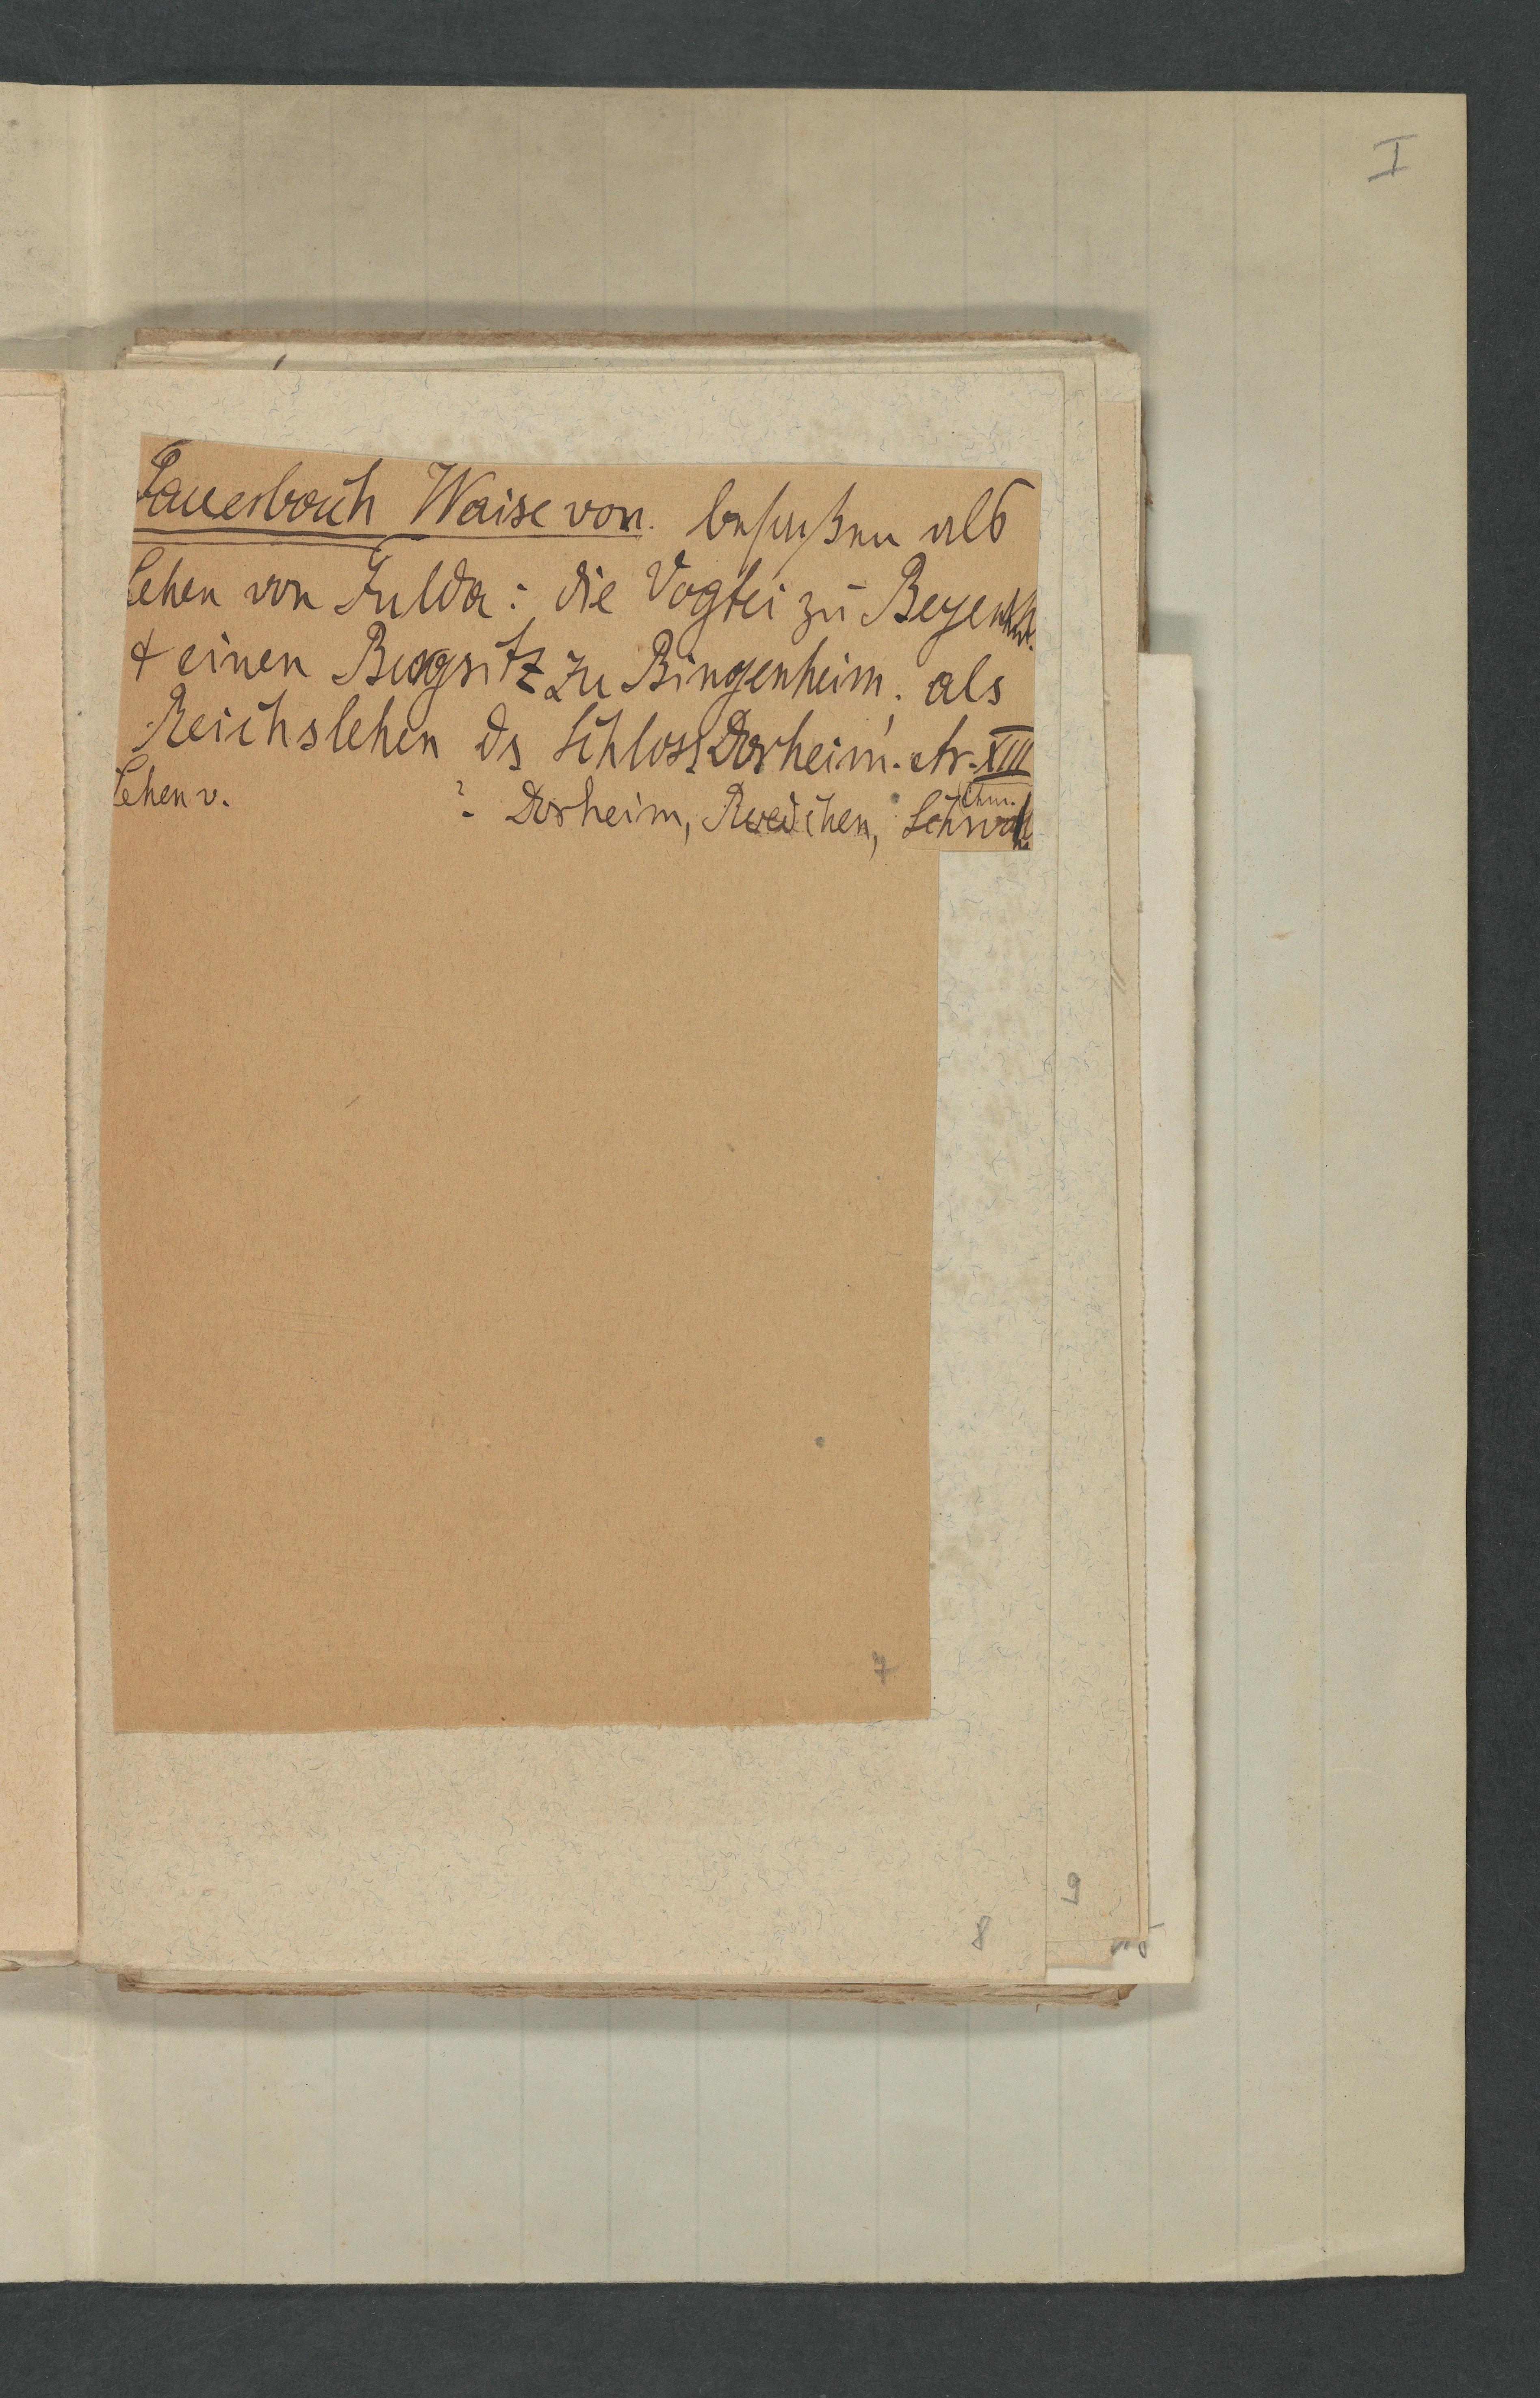 I
Fauerbach Waise von. besaßen als
Lehen von Fulda: die Vogtei zu Beyenh.
& einen Burgsitz zu Bingenheim; als
Reichslehen ds Schloss Dorheim. Ar. XIII
Lehen v. ? Dorheim, Roedchen,
7
9
8